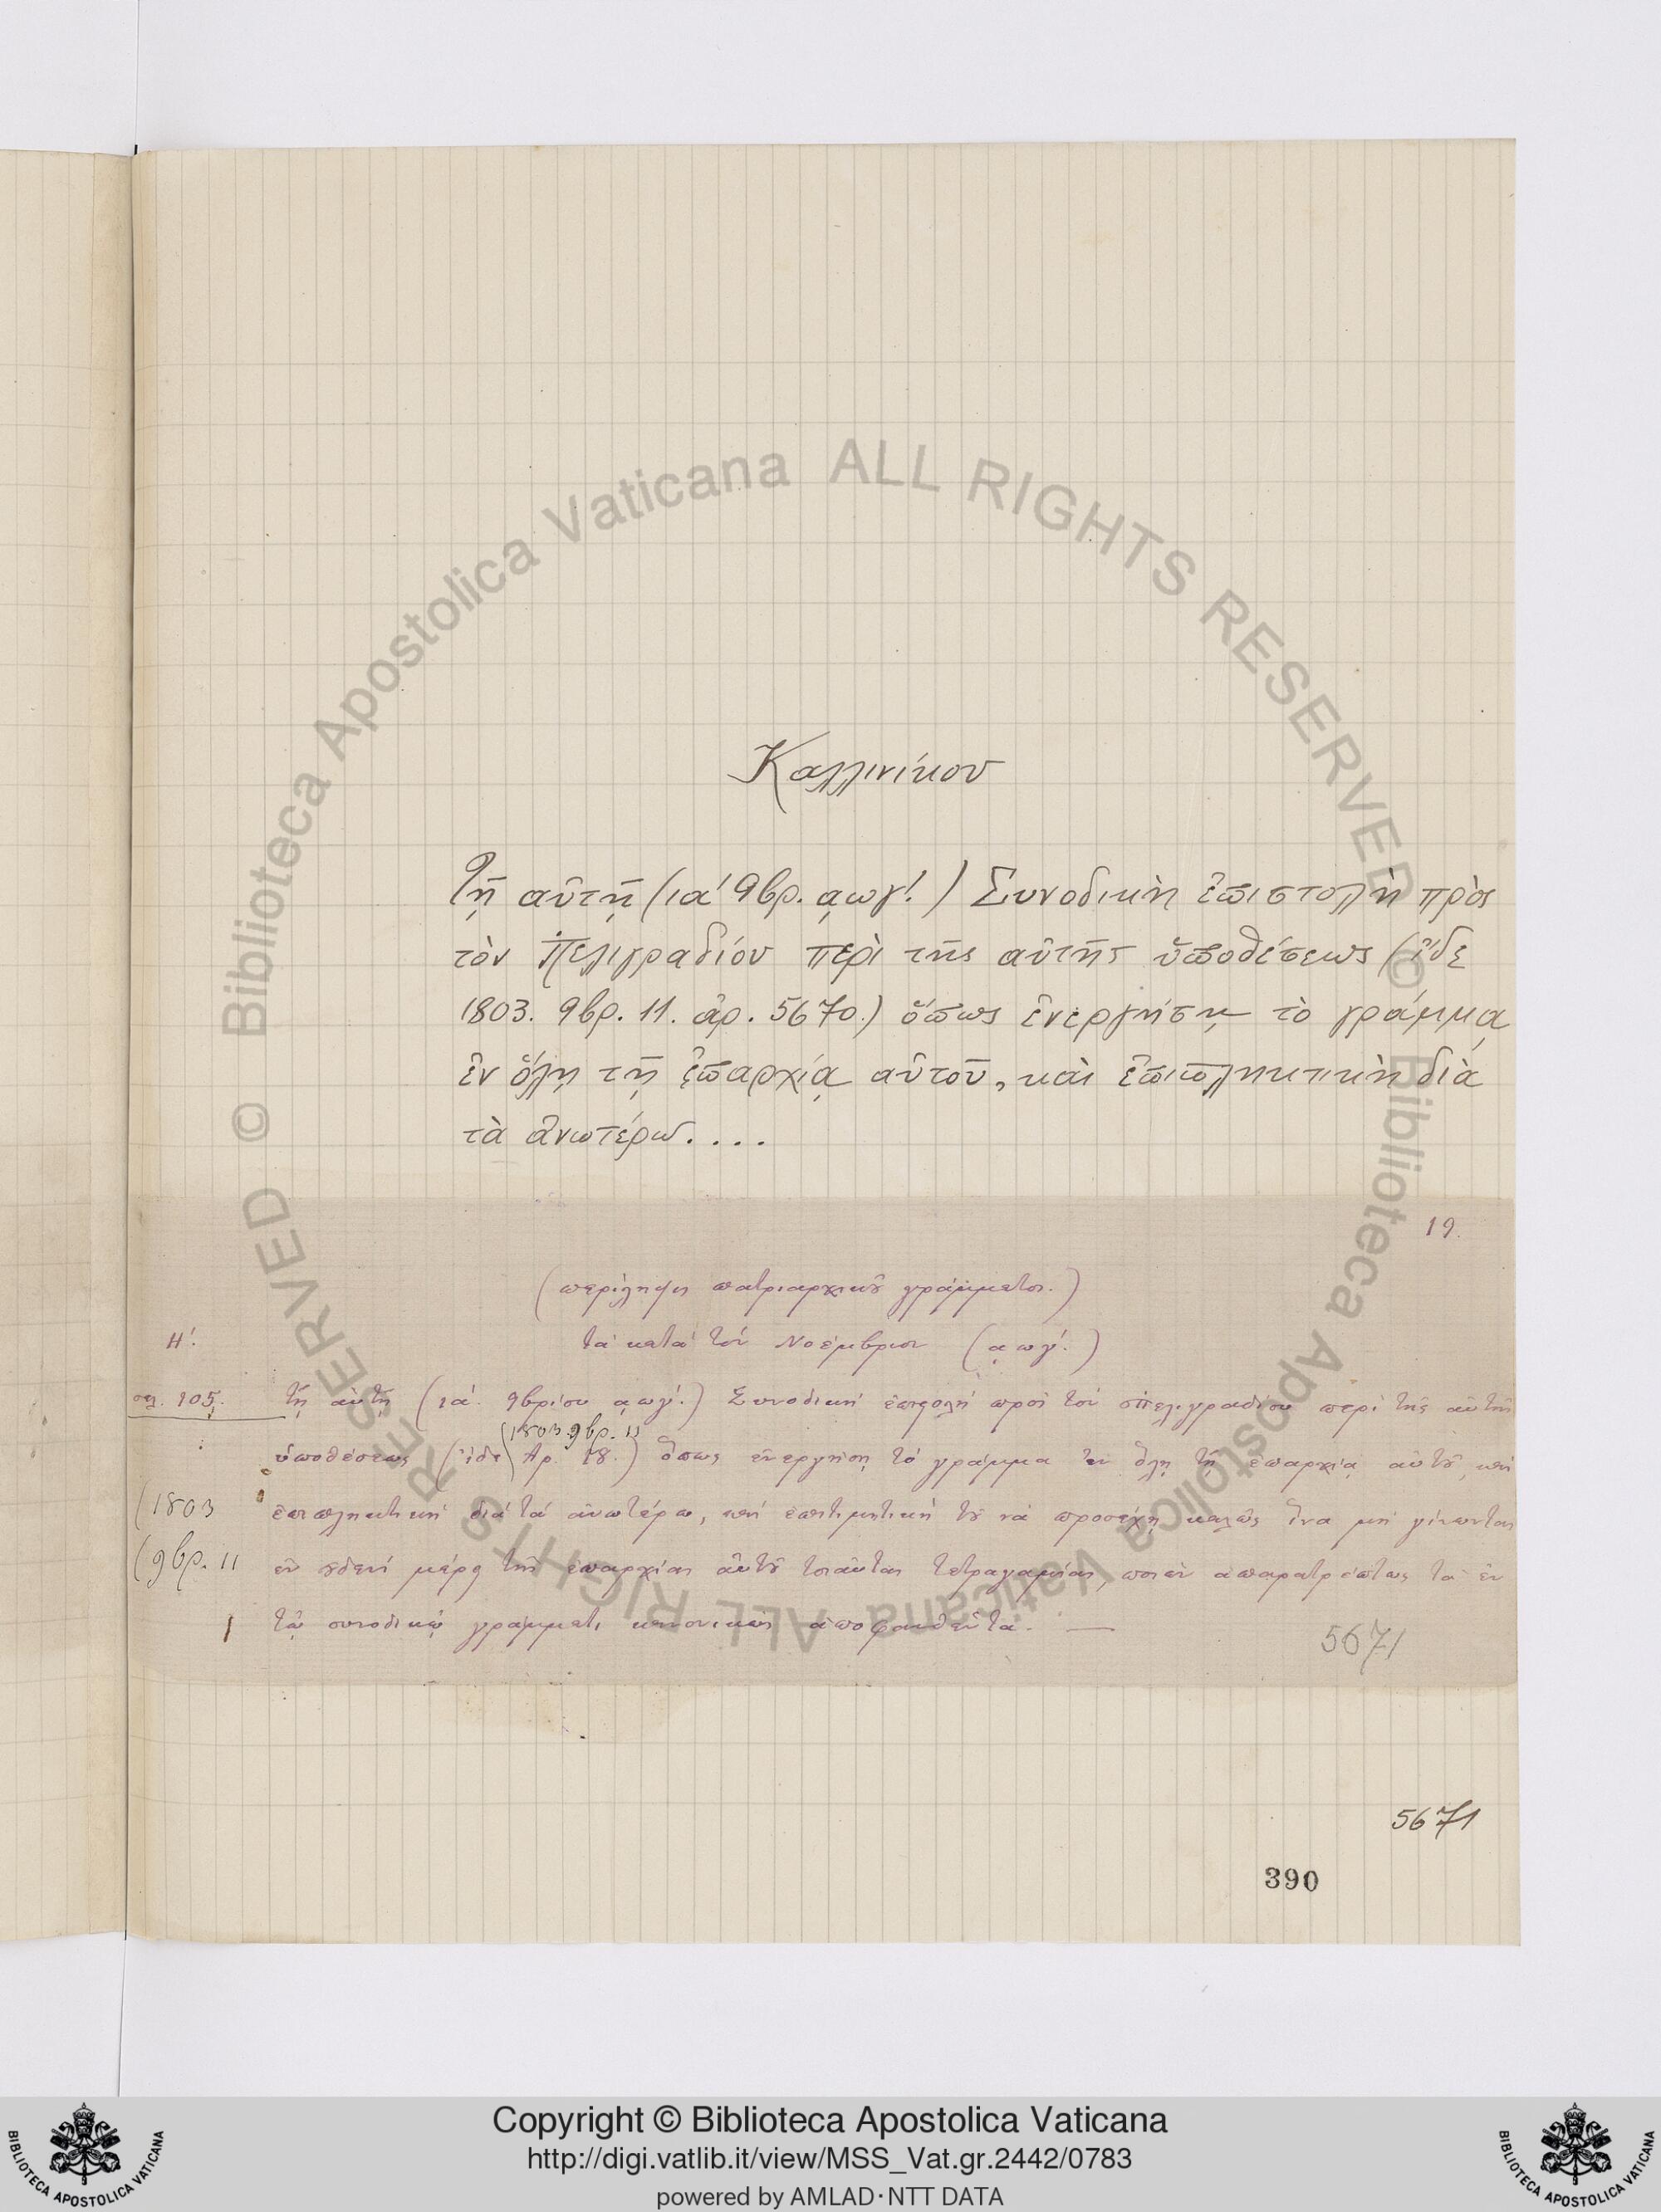 Καλλινίκου
Τῇ αὐτῇ (ια΄ 9βρ. ͵αωγ΄.) Συνοδικὴ ἐπιστολὴ πρὸς
τὸν Πελιγραδίου περὶ τῆς αὐτῆς ὑποθέσεως (ἴδε
1803. 9βρ. 11. ἀρ. 5670.) ὅπως ἐνεργήσῃ τὸ γράμμα
ἐν ὅλῃ τῇ ἐπαρχίᾳ αὐτοῦ, καὶ ἐπιπληκτικὴ διὰ
τὰ ἀνωτέρω....
19.
(περίληψις πατριαρχικοῦ γράμματος.)
Η΄. τὰ κατὰ τὸν Νοέμβριον (͵αωγ΄.)
σελ. 105. τῇ αὐτῇ (ια΄. 9βρίου ͵αωγ΄.) Συνοδικὴ ἐπιστολὴ πρὸς τὸν Πελιγραδίου περὶ τῆς αὐτῆς
(1803 9βρ. 11
ὑποθέσεως (ἴδε Ἀρ. 18.) ὅπως ἐνεργήσῃ τὸ γράμμα ἐν ὅλῃ τῇ ἐπαρχίᾳ αὐτοῦ, καὶ
(1803 ἐπιπληκτικὴ διὰ τὰ ἀνωτέρω, καὶ ἐπιτιμητικὴ τοῦ νὰ προσέχῃ καλῶς ἵνα μὴ γίνωνται
(9βρ. 11 ἐν οὐδενὶ μέρει τῆς ἐπαρχίας αὐτοῦ τοιαῦται τετραγαμίαι, ποιεῖν ἀπαρατρέπτως τὰ ἐν
τῷ συνοδικῷ γράμματι κανονικῶς ἀποφανθέντα. —
5671
5671
390
Copyright © Biblioteca Apostolica Vaticana
http://digi.vatlib.it/view/MSS_Vat.gr.2442/0783
powered by AMLAD·NTT DATA
BIBLIOTECA APOSTOLICA VATICANA
BIBLIOTECA APOSTOLICA VATICANA
© Biblioteca Apostolica Vaticana ALL RIGHTS RESERVED
© Biblioteca Apostolica Vaticana ALL RIGHTS RESERVED